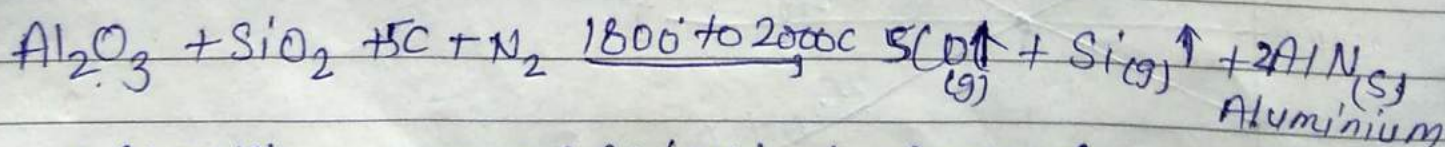 Al₂O₃ + SiO₂ + 5C + N₂ 1800° to 2000C 5CO↑ (g) + Si(g)↑ + 2AlN(s)
Aluminium